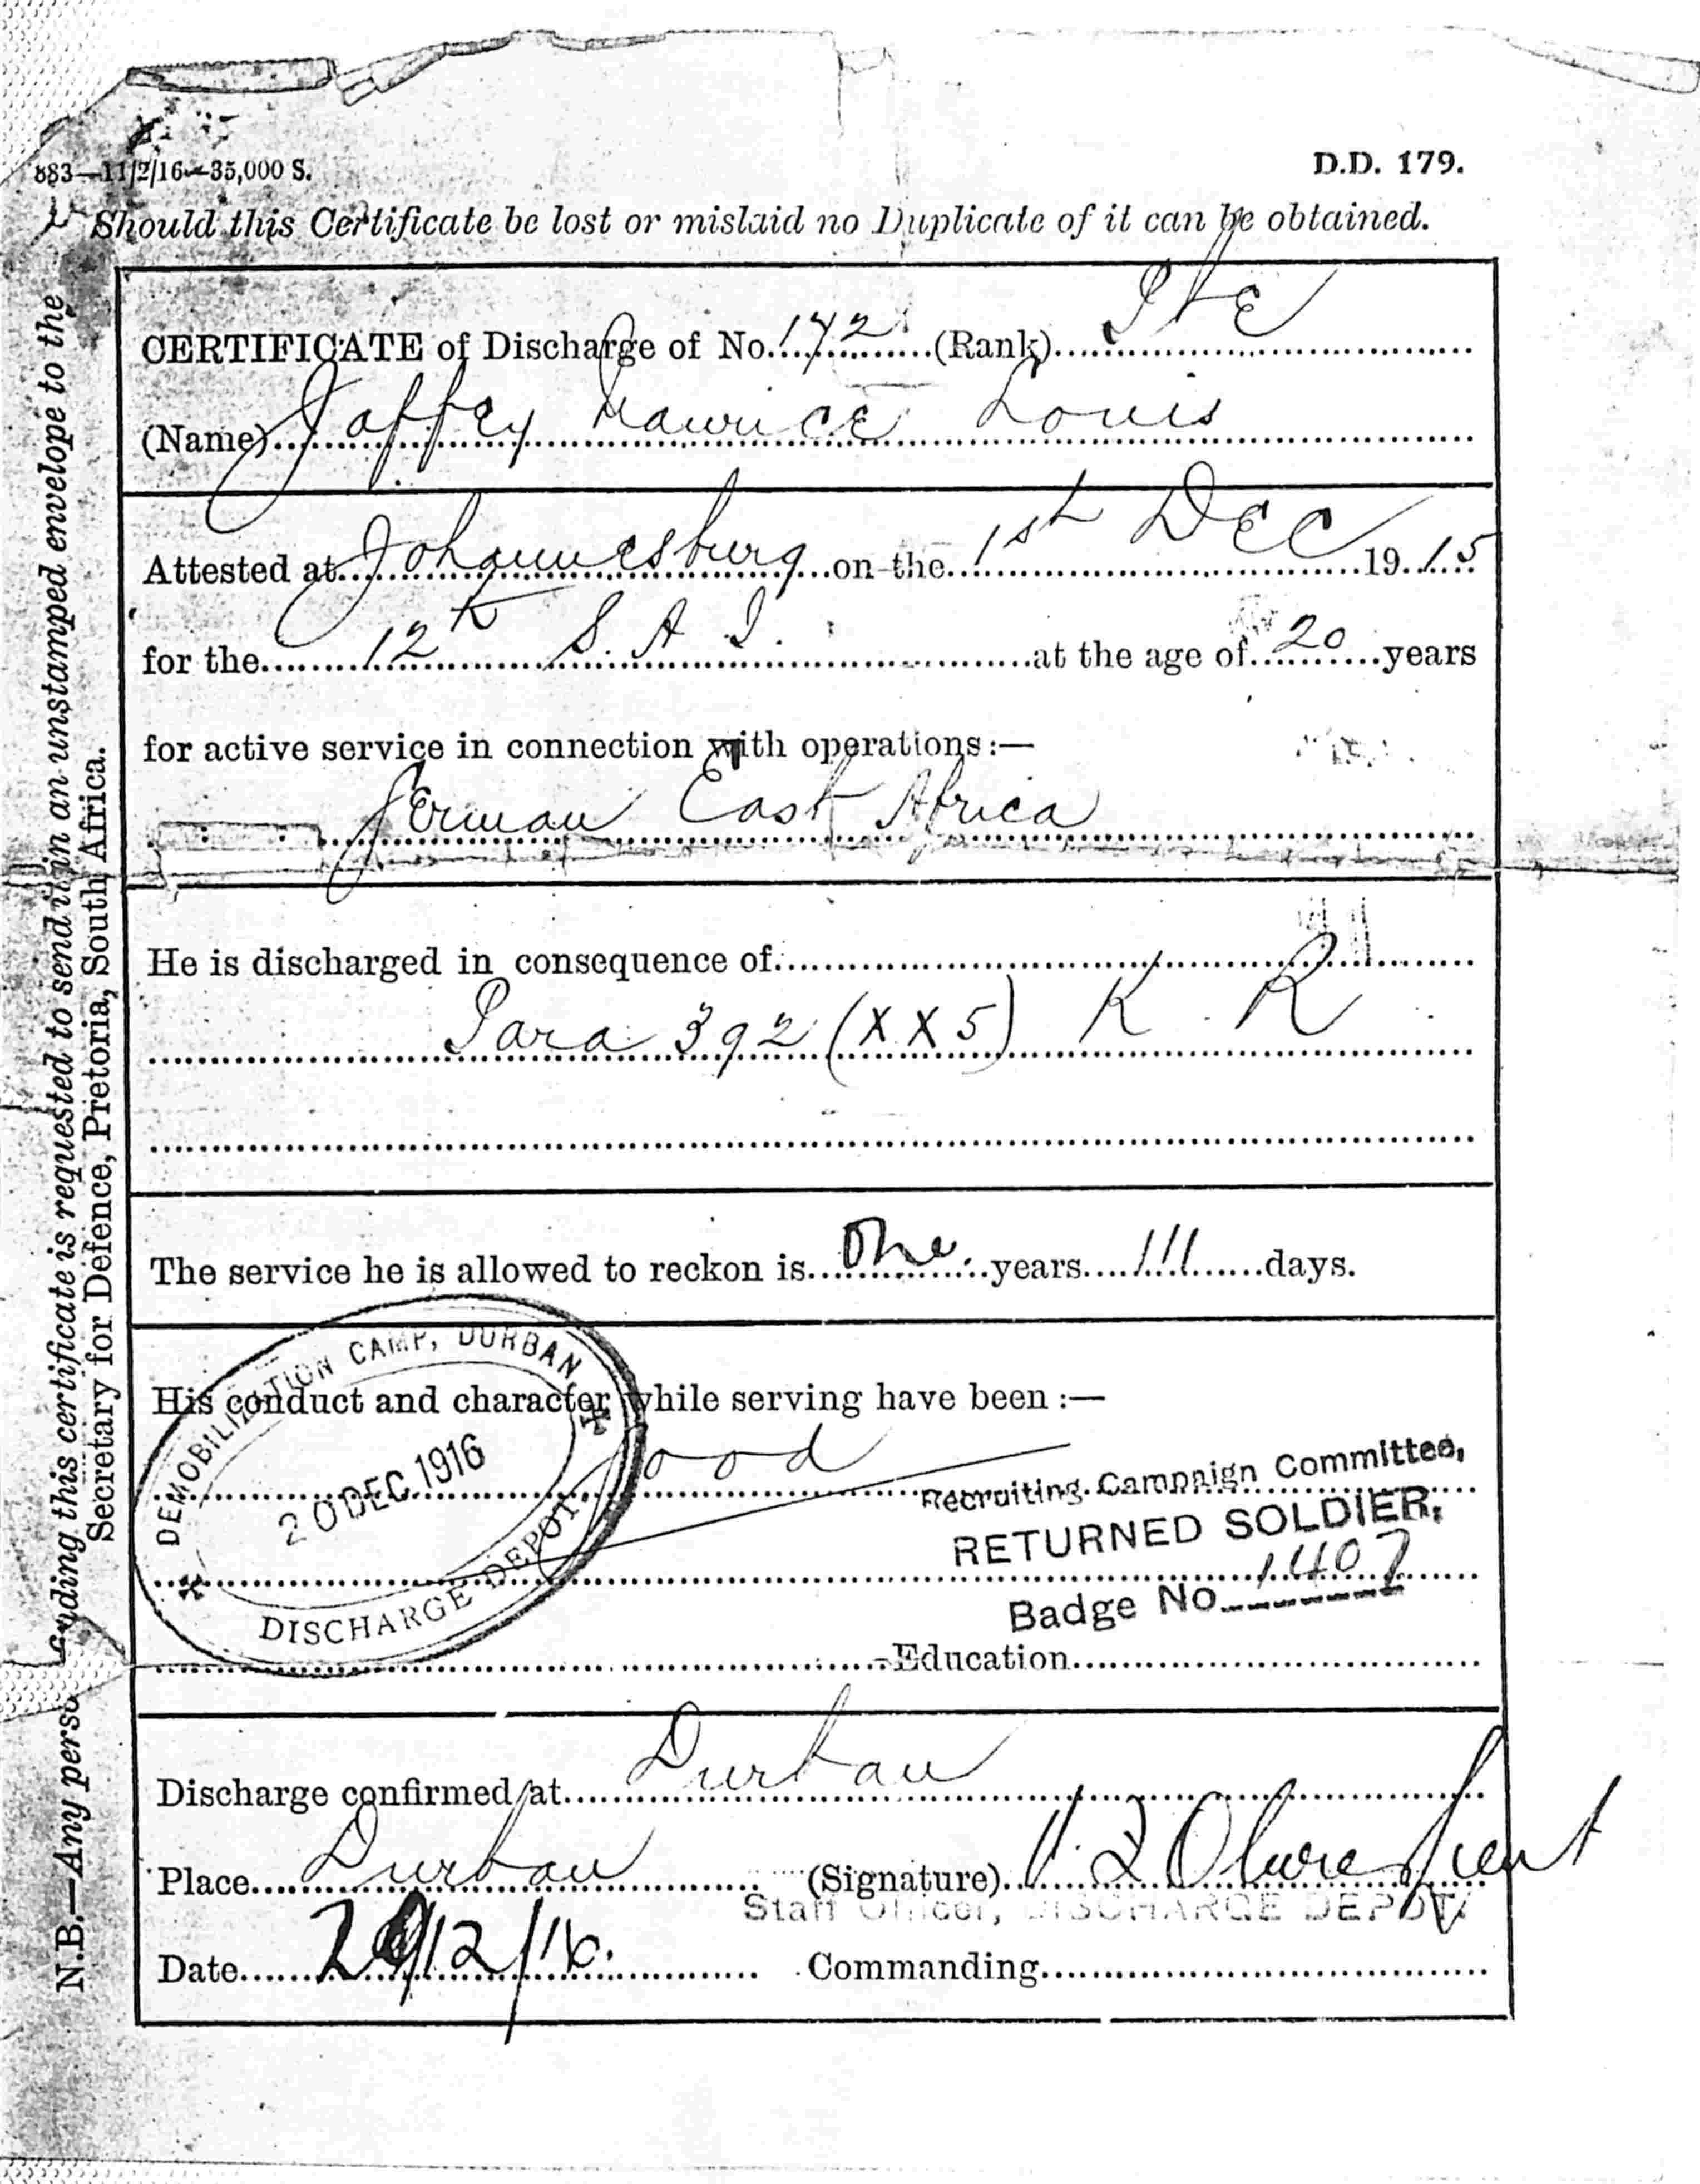 883—11/2/16—35,000 S.
D.D. 179.
Should this Certificate be lost or mislaid no Duplicate of it can be obtained.
CERTIFICATE of Discharge of No. 172 (Rank) Pte
(Name) Jaffey Maurice Louis
Attested at Johannesburg on the 1st Dec 1915
for the 12th S. A. I. at the age of 20 years
for active service in connection with operations:—
German East Africa
He is discharged in consequence of
Para 392 (XX5) K R
The service he is allowed to reckon is One years 111 days.
His conduct and character while serving have been :—
Good
DEMOBILIZATION CAMP, DURBAN
20 DEC 1916
DISCHARGE DEPOT.
Recruiting Campaign Committee,
RETURNED SOLDIER,
Badge No 1407
Education
Discharge confirmed at Durban
Place Durban (Signature)
Staff Officer, DISCHARGE DEPOT.
Date 20/12/16. Commanding
N.B.—Any person finding this certificate is requested to send it in an unstamped envelope to the
Secretary for Defence, Pretoria, South Africa.